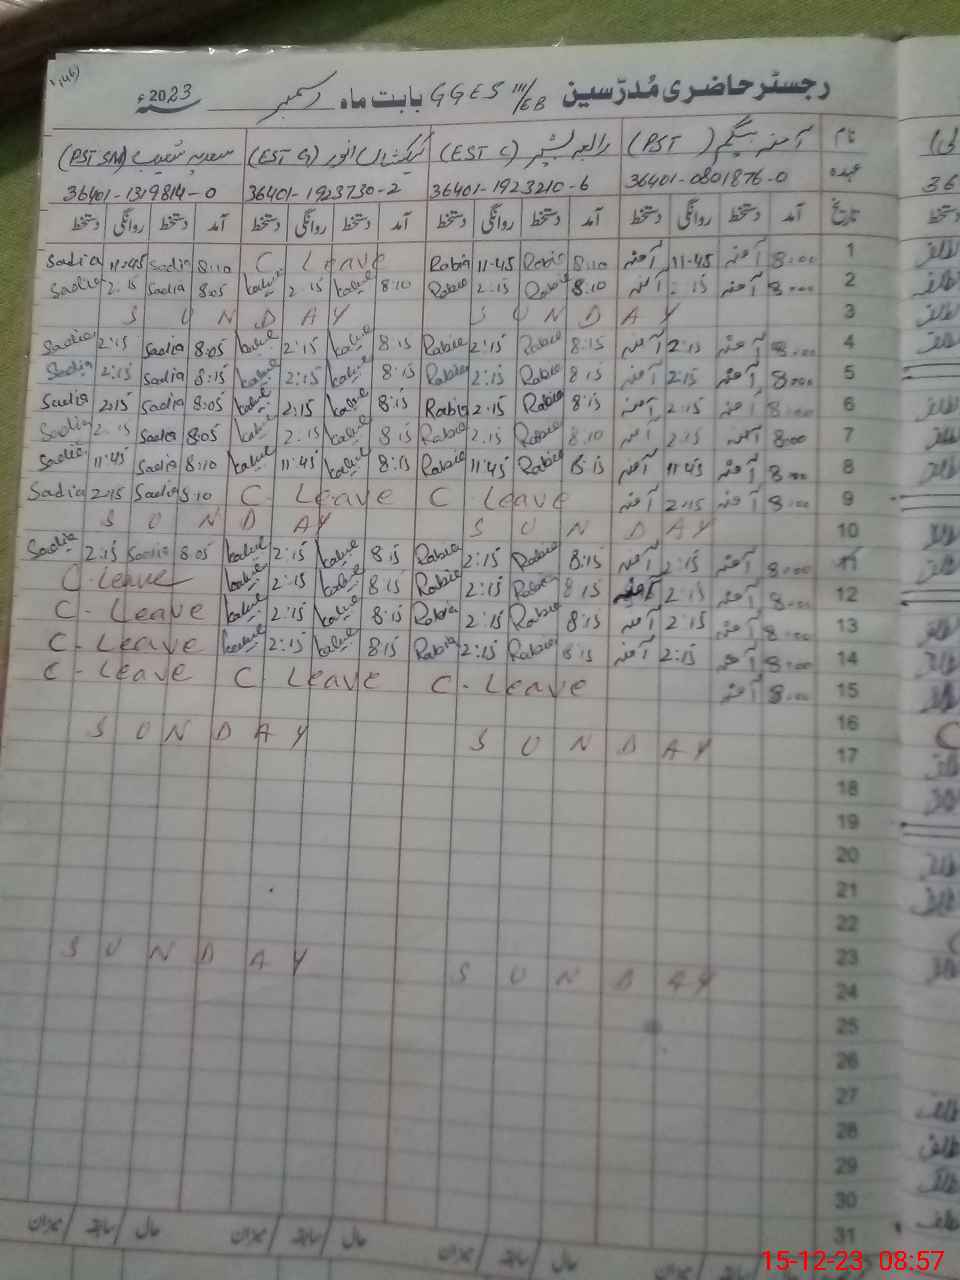 رجسٹر حاضری مُدرّسین GGES 111/EB بابت ماہ دسمبر 2023ء
نام آمنہ بیگم (PST) رابعہ بشیر (EST C) انور (EST G) سعدیہ شعیب (PST SM)
عہدہ 36401-0801876-0 36401-1923210-6 36401-1923730-2 36401-1319814-0
تاریخ آمد دستخط روانگی دستخط آمد دستخط روانگی دستخط آمد دستخط روانگی دستخط آمد دستخط روانگی دستخط
1 8:00 آمنہ 11:45 آمنہ 8:10 Rabia 11:45 Rabia C Leave 8:10 Sadia 11:45 Sadia
2 8:00 آمنہ 2:15 آمنہ 8:10 Rabia 2:15 Rabia 8:10 2:15 8:05 Sadia 2:15 Sadia
3 SUNDAY SUNDAY
4 8:00 آمنہ 2:15 آمنہ 8:15 Rabia 2:15 Rabia 8:15 2:15 8:05 Sadia 2:15 Sadia
5 8:00 آمنہ 2:15 آمنہ 8:15 Rabia 2:15 Rabia 8:15 2:15 8:15 Sadia 2:15 Sadia
6 8:00 آمنہ 2:15 آمنہ 8:15 Rabia 2:15 Rabia 8:15 2:15 8:05 Sadia 2:15 Sadia
7 8:00 آمنہ 2:15 آمنہ 8:10 Rabia 2:15 Rabia 8:15 2:15 8:05 Sadia 2:15 Sadia
8 8:00 آمنہ 11:45 آمنہ 8:15 Rabia 11:45 Rabia 8:15 11:45 8:10 Sadia 11:45 Sadia
9 8:00 آمنہ 2:15 آمنہ C Leave C- Leave Sadia 2:15 Sadia
10 SUNDAY SUNDAY
11 8:00 آمنہ 2:15 آمنہ 8:15 Rabia 2:15 Rabia 8:15 2:15 8:05 Sadia 2:15 Sadia
12 8:00 آمنہ 2:15 آمنہ 8:15 Rabia 2:15 Rabia 8:15 2:15 C-Leave
13 8:00 آمنہ 2:15 آمنہ 8:15 Rabia 2:15 Rabia 8:15 2:15 C- Leave
14 8:00 آمنہ 2:15 آمنہ 8:15 Rabia 2:15 Rabia 8:15 2:15 C- Leave
15 8:00 آمنہ C- Leave C Leave C- Leave
16
17 SUNDAY SUNDAY
18
19
20
21
22
23
24 SUNDAY SUNDAY
25
26
27
28
29
30
31
حال سابقہ میزان حال سابقہ میزان حال سابقہ میزان
15-12-23 08:57